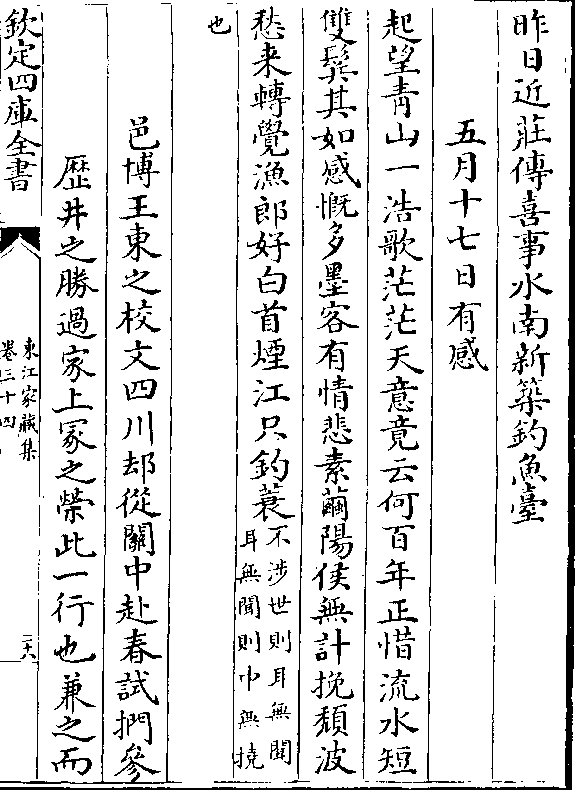 昨日近莊傳喜事水南新築釣魚臺
五月十七日有感
起望青山一浩歌茫茫天意竟云何百年正惜流水短
雙鬂其如感慨多墨客有情悲素繭陽侯無計挽頽波
愁来轉覺漁郎好白首煙江只釣蓑不涉世則耳無聞
耳無聞則中無撓
也
邑博王東之校文四川却從關中赴春試捫參
歴井之勝過家上冢之榮此一行也兼之而
欽定四庫全書
東江家藏集
卷三十四
二六